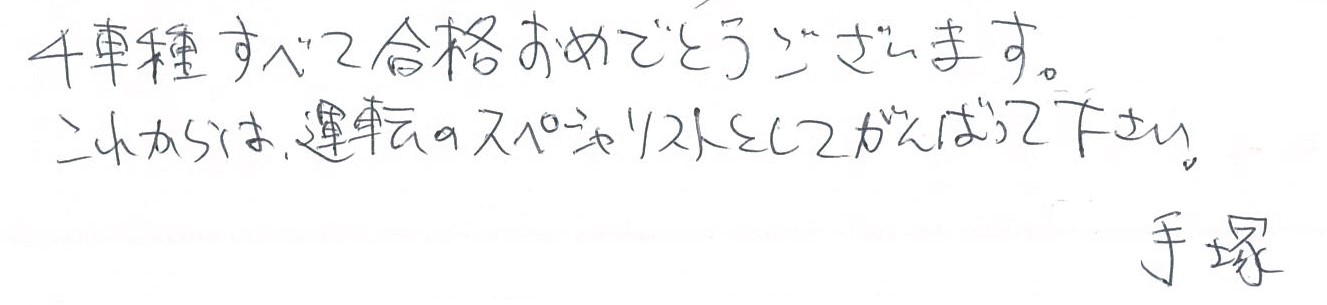 4車種すべて合格おめでとうございます。
これからは、運転のスペシャリストとしてがんばって下さい。
手塚